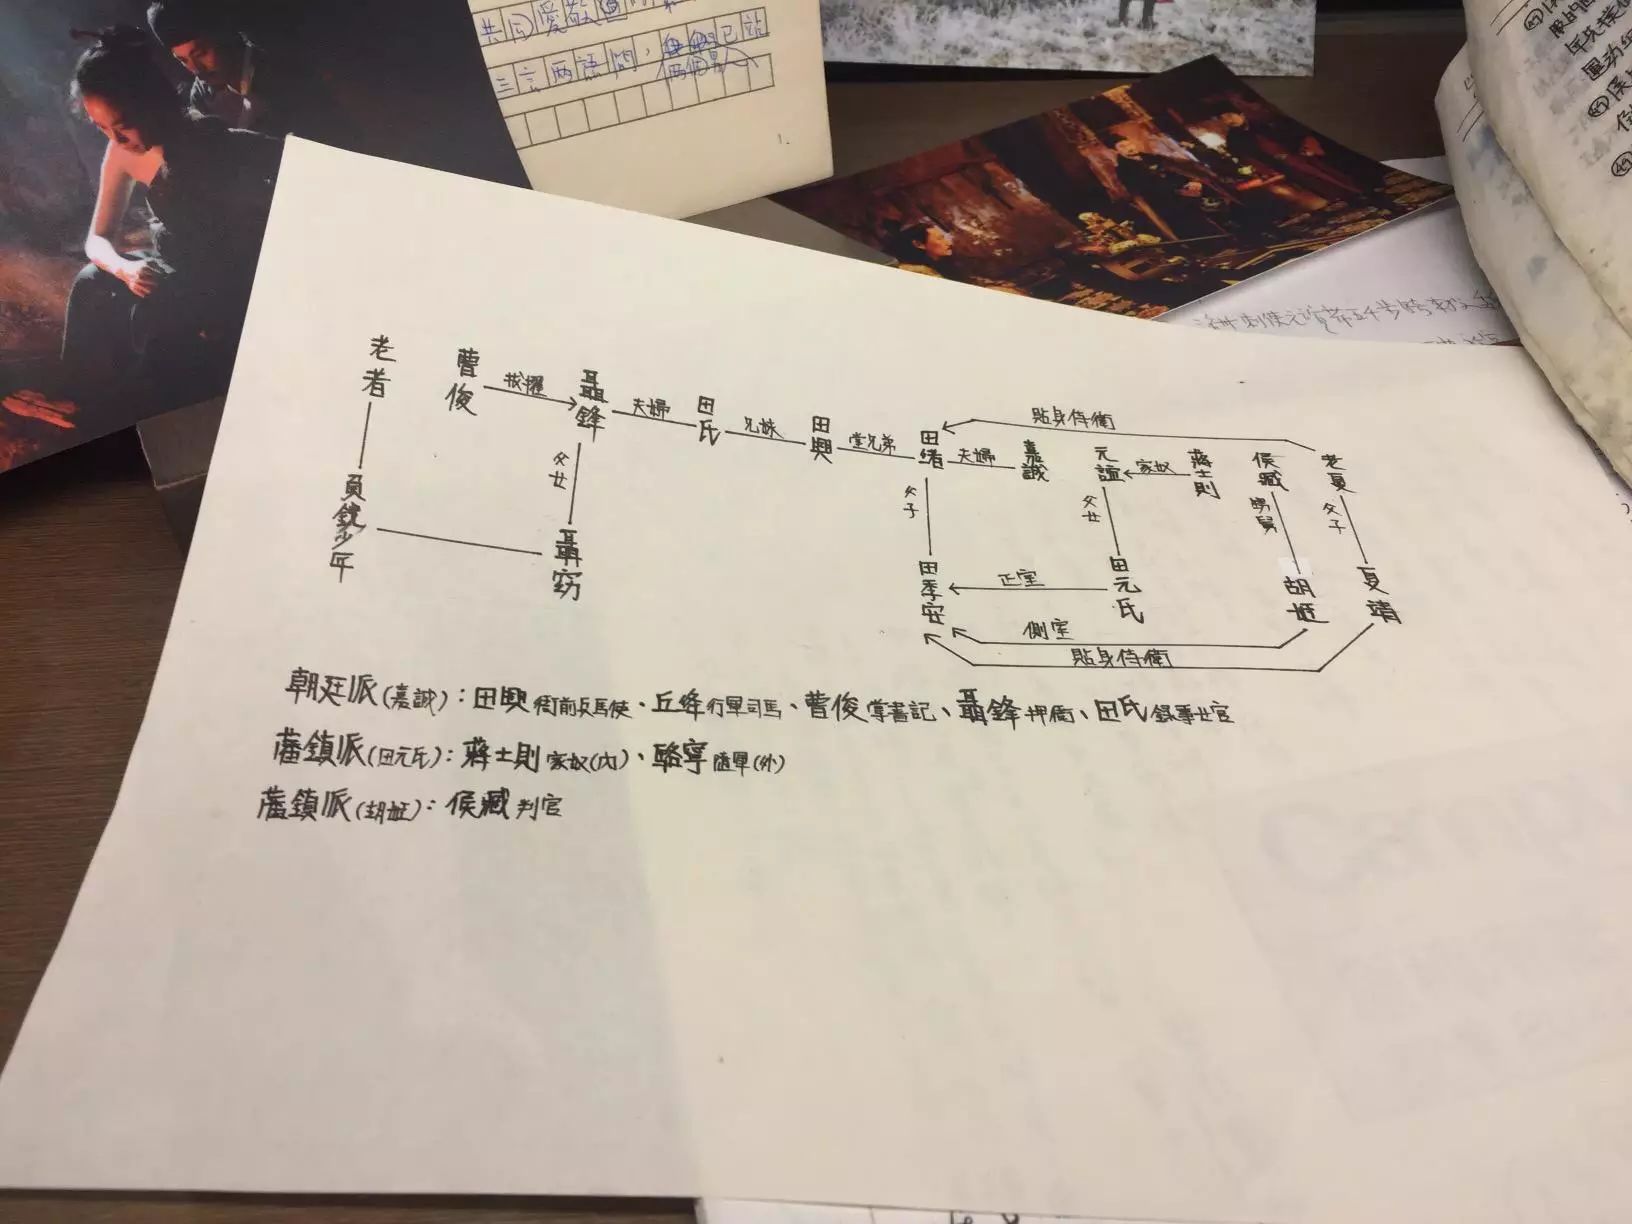 共同愛敬
三言兩語間,
已站
1.
老者
曹俊
拔擢
聶鋒
夫婦
田氏
兄妹
田興
堂兄弟
田緒
夫婦
嘉誠
元誼
家奴
蔣士則
侯臧
老夏
貼身侍衛
父女
父子
父女
甥舅
父子
負鏡少年
聶窈
田季安
正室
田元氏
胡姬
夏靖
側室
貼身侍衛
朝廷派(嘉誠):田興衙前兵馬使、丘絳行軍司馬、曹俊掌書記、聶鋒押衙、田氏錄事女官
藩鎮派(田元氏):蔣士則家奴(內)、駱寧隨軍(外)
藩鎮派(胡姬):侯臧判官